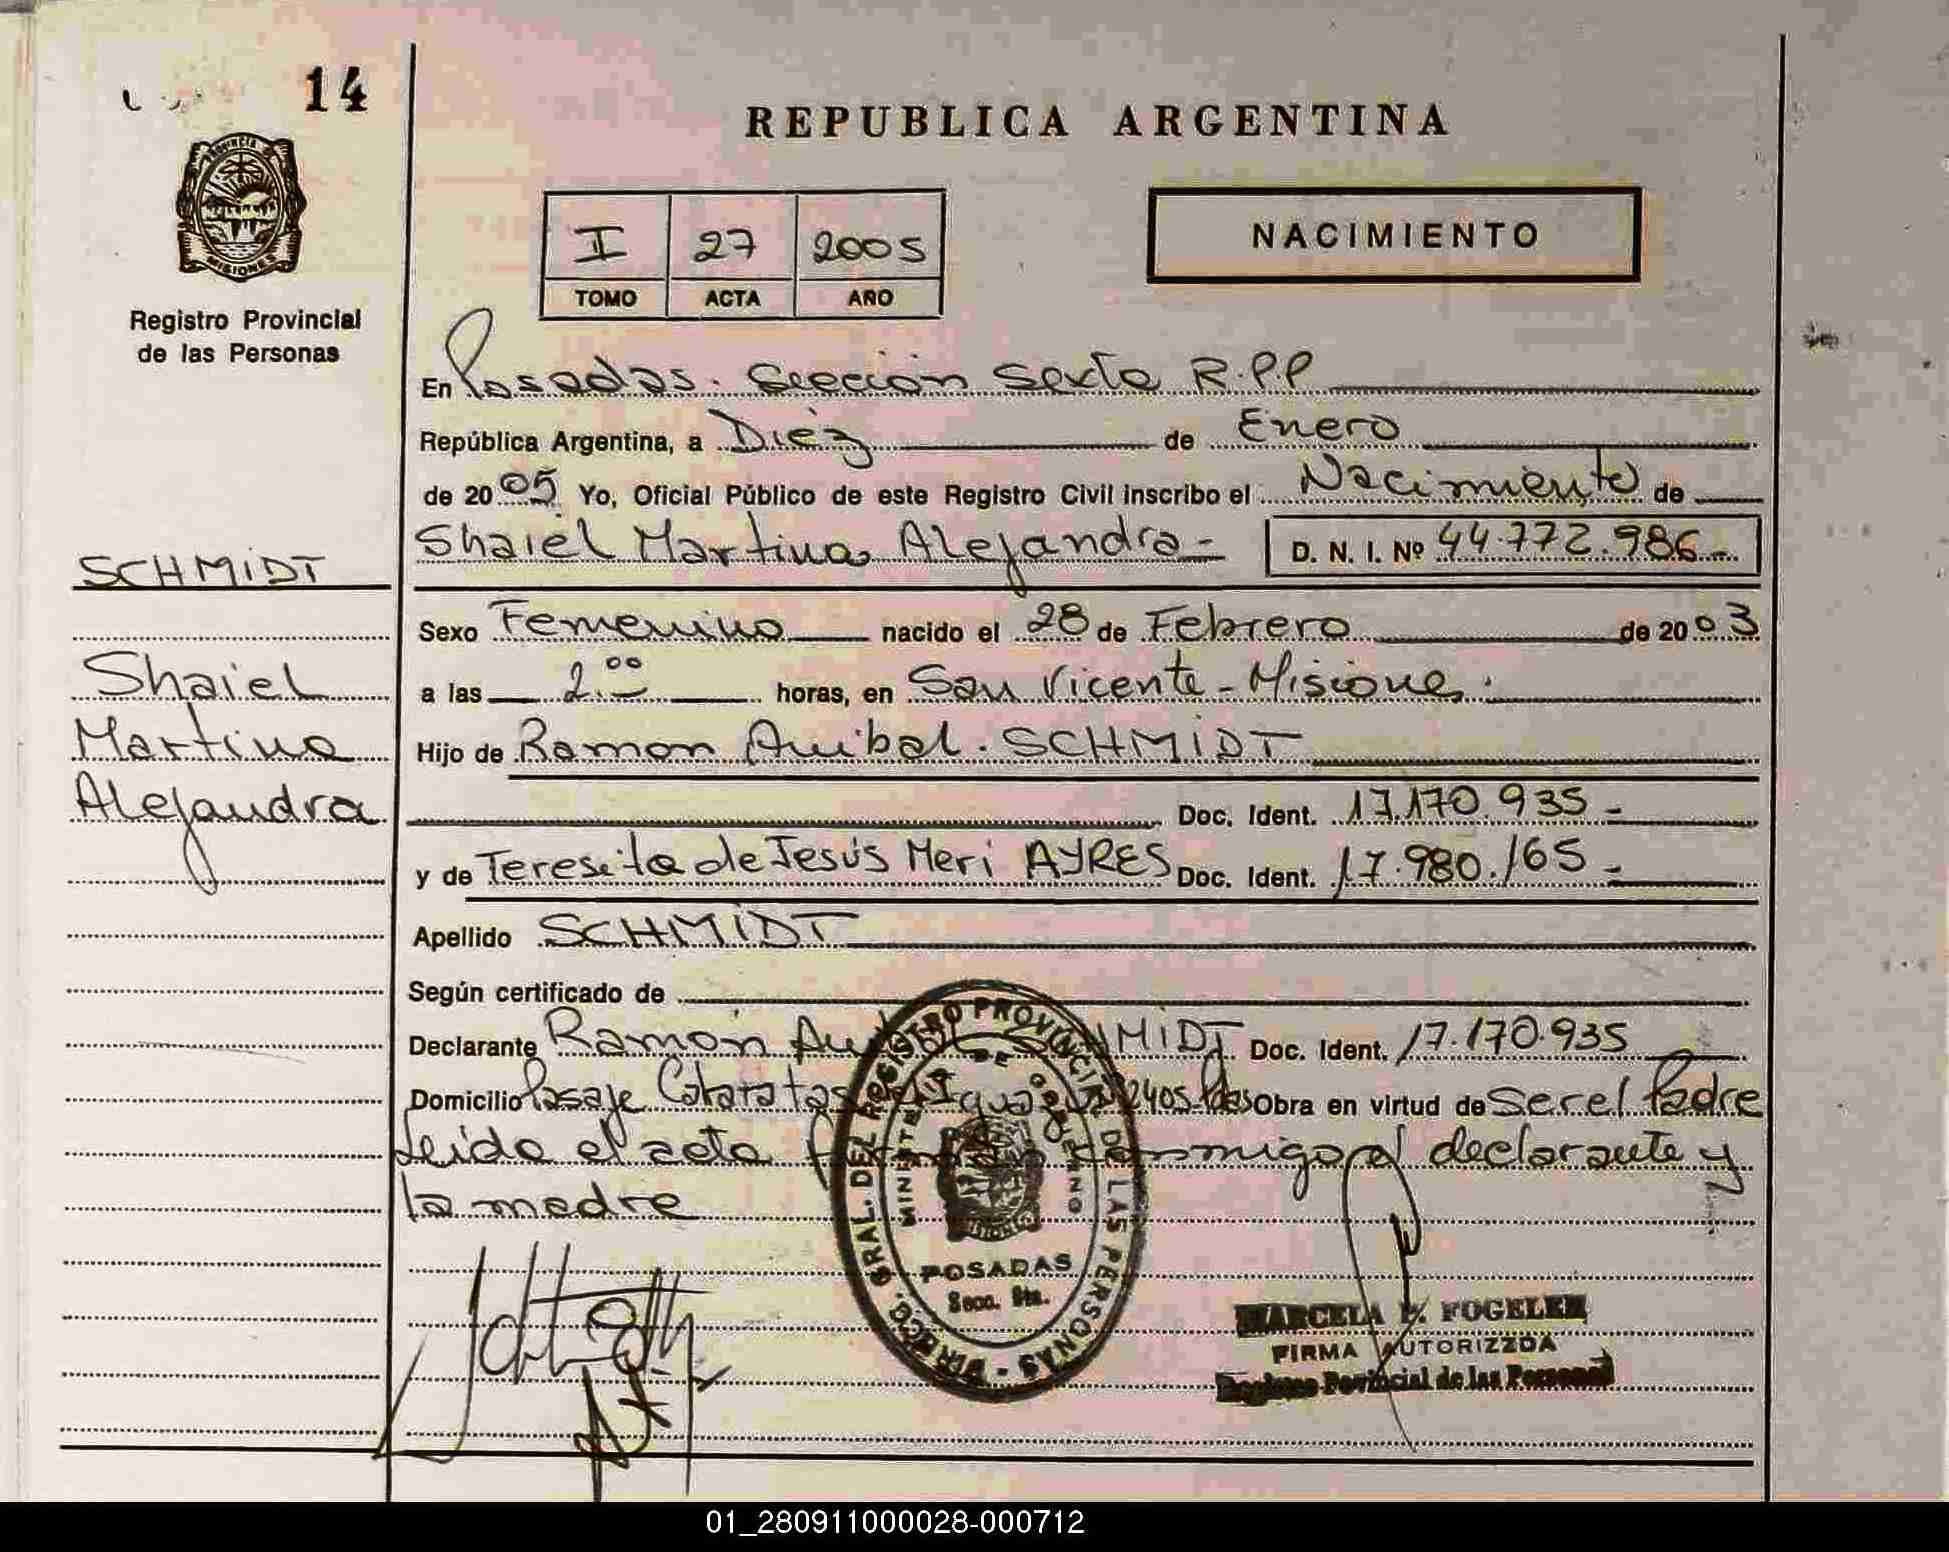 14
REPUBLICA ARGENTINA
PROVINCIA DE MISIONES
Registro Provincial
de las Personas
I 27 2005
TOMO ACTA AÑO
NACIMIENTO
En Posadas. Sección Sexta R.P.P
República Argentina, a Diéz de Enero
de 2005 Yo, Oficial Público de este Registro Civil inscribo el Nacimiento de
Shaiel Martina Alejandra - D. N. I. Nº 44.772.986 -
SCHMIDT
Shaiel
Martina
Alejandra
Sexo Femenino nacido el 28 de Febrero de 2003
a las 2.00 horas, en San Vicente - Misiones.
Hijo de Ramon Anibal. SCHMIDT
Doc. Ident. 17.170.935 -
y de Teresita de Jesús Meri AYRES Doc. Ident. 17.980.165 -
Apellido SCHMIDT
Según certificado de
Declarante Ramón SCHMIDT Doc. Ident. 17.170.935
Domicilio Pasaje Cataratas Iguazú 2405 Pdas Obra en virtud de Ser el Padre
Leida el acta firman conmigo el declarante y
la madre
DIRECC. GRAL. DEL REGISTRO PROVINCIAL DE LAS PERSONAS
MINISTERIO DE GOBIERNO
POSADAS
Secc. 6ta.
MARCELA FOGELER
FIRMA AUTORIZZDA
Provincial de las Personas
01_280911000028-000712